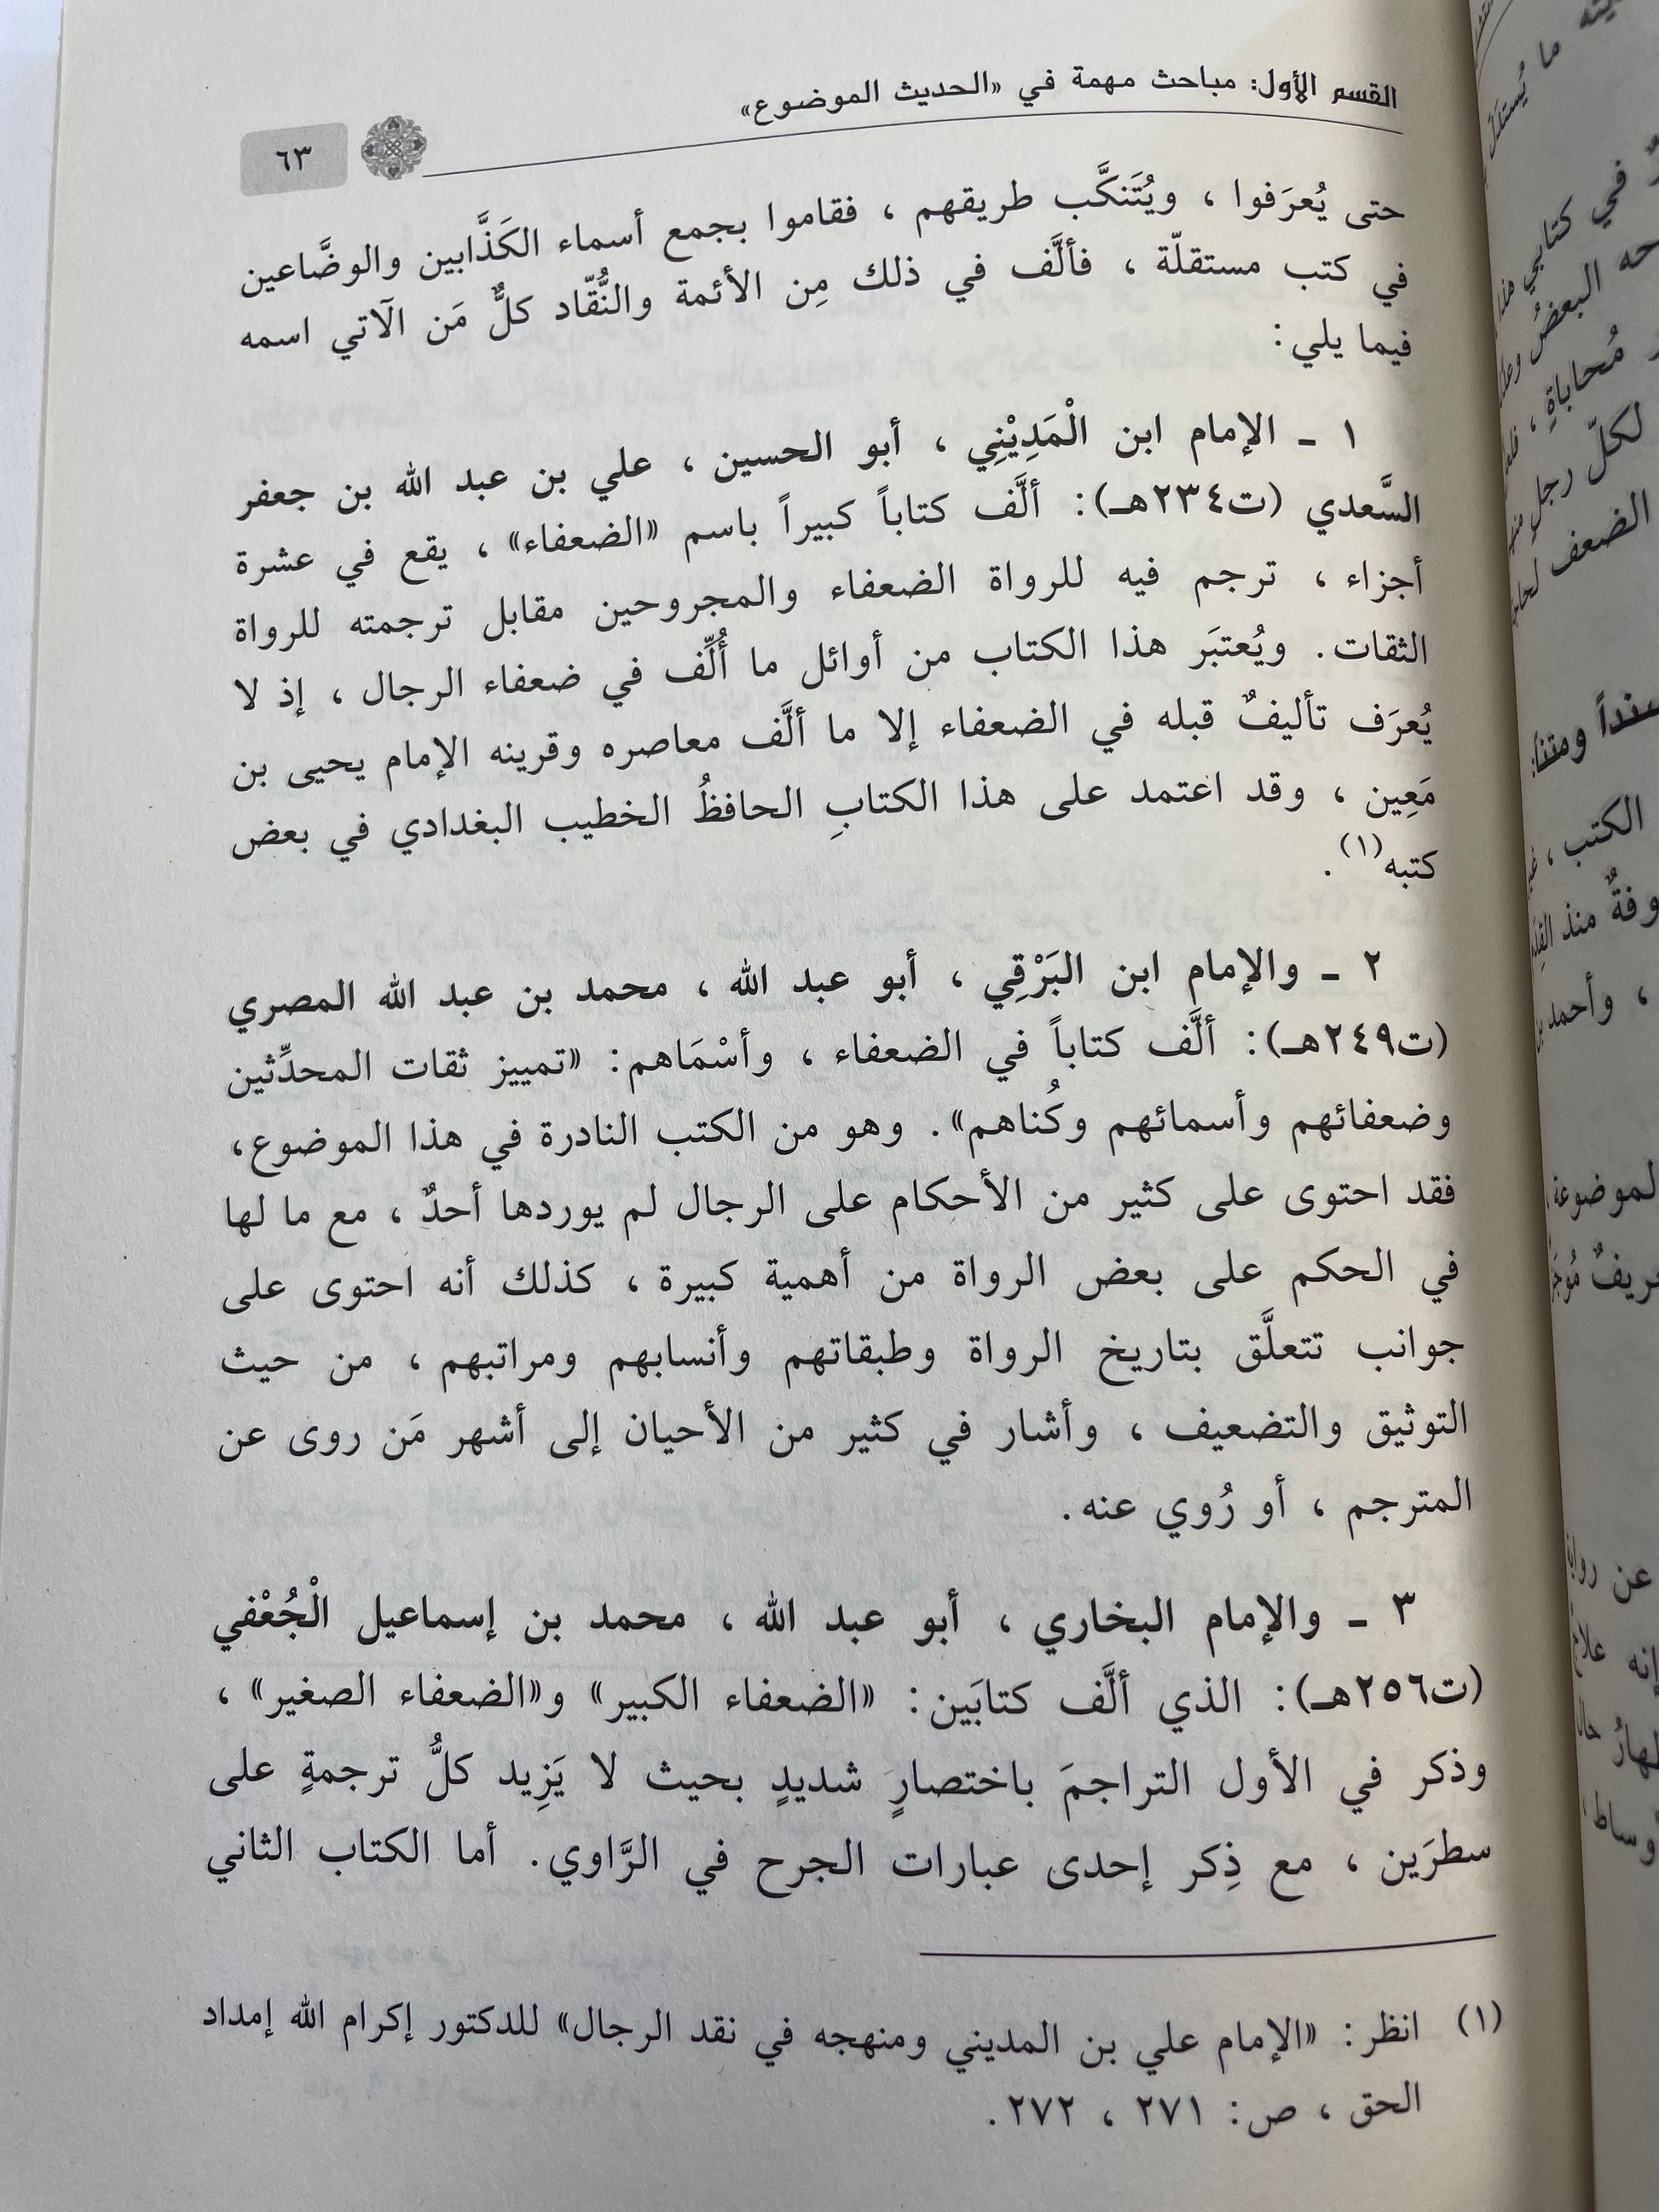 القسم الأول: مباحث مهمة في «الحديث الموضوع»
٦٣
حتى يُعرَفوا ، ويُتَنكَّب طريقهم ، فقاموا بجمع أسماء الكَذَّابين والوضَّاعين
في كتب مستقلّة ، فألَّف في ذلك مِن الأئمة والنُّقّاد كلٌّ مَن الآتي اسمه
فيما يلي:
١ ـ الإمام ابن الْمَدِيْنِي ، أبو الحسين ، علي بن عبد الله بن جعفر
السَّعدي (ت٢٣٤هـ): ألَّف كتاباً كبيراً باسم «الضعفاء» ، يقع في عشرة
أجزاء ، ترجم فيه للرواة الضعفاء والمجروحين مقابل ترجمته للرواة
الثقات. ويُعتبَر هذا الكتاب من أوائل ما أُلِّف في ضعفاء الرجال ، إذ لا
يُعرَف تأليفٌ قبله في الضعفاء إلا ما ألَّف معاصره وقرينه الإمام يحيى بن
مَعِين ، وقد اعتمد على هذا الكتابِ الحافظُ الخطيب البغدادي في بعض
كتبه(١).
٢ ـ والإمام ابن البَرْقِي ، أبو عبد الله ، محمد بن عبد الله المصري
(ت٢٤٩هـ): ألَّف كتاباً في الضعفاء ، وأسْمَاهم: «تمييز ثقات المحدِّثين
وضعفائهم وأسمائهم وكُناهم». وهو من الكتب النادرة في هذا الموضوع،
فقد احتوى على كثير من الأحكام على الرجال لم يوردها أحدٌ ، مع ما لها
في الحكم على بعض الرواة من أهمية كبيرة ، كذلك أنه احتوى على
جوانب تتعلَّق بتاريخ الرواة وطبقاتهم وأنسابهم ومراتبهم ، من حيث
التوثيق والتضعيف ، وأشار في كثير من الأحيان إلى أشهر مَن روى عن
المترجم ، أو رُوي عنه.
٣ ـ والإمام البخاري ، أبو عبد الله ، محمد بن إسماعيل الْجُعْفي
(ت٢٥٦هـ): الذي ألَّف كتابَين: «الضعفاء الكبير» و«الضعفاء الصغير» ،
وذكر في الأول التراجمَ باختصارٍ شديدٍ بحيث لا يَزِيد كلُّ ترجمةٍ على
سطرَين ، مع ذِكر إحدى عبارات الجرح في الرَّاوي. أما الكتاب الثاني
(١) انظر: «الإمام علي بن المديني ومنهجه في نقد الرجال» للدكتور إكرام الله إمداد
الحق ، ص: ٢٧١ ، ٢٧٢.
ما يُستدَلّ
في كتابي هذا
البعضُ
مُحاباةٍ ،
لكلّ رجلٍ
الضعف
سنداً ومتناً:
الكتب ،
منذ
، وأحمد بن
عن
إنه